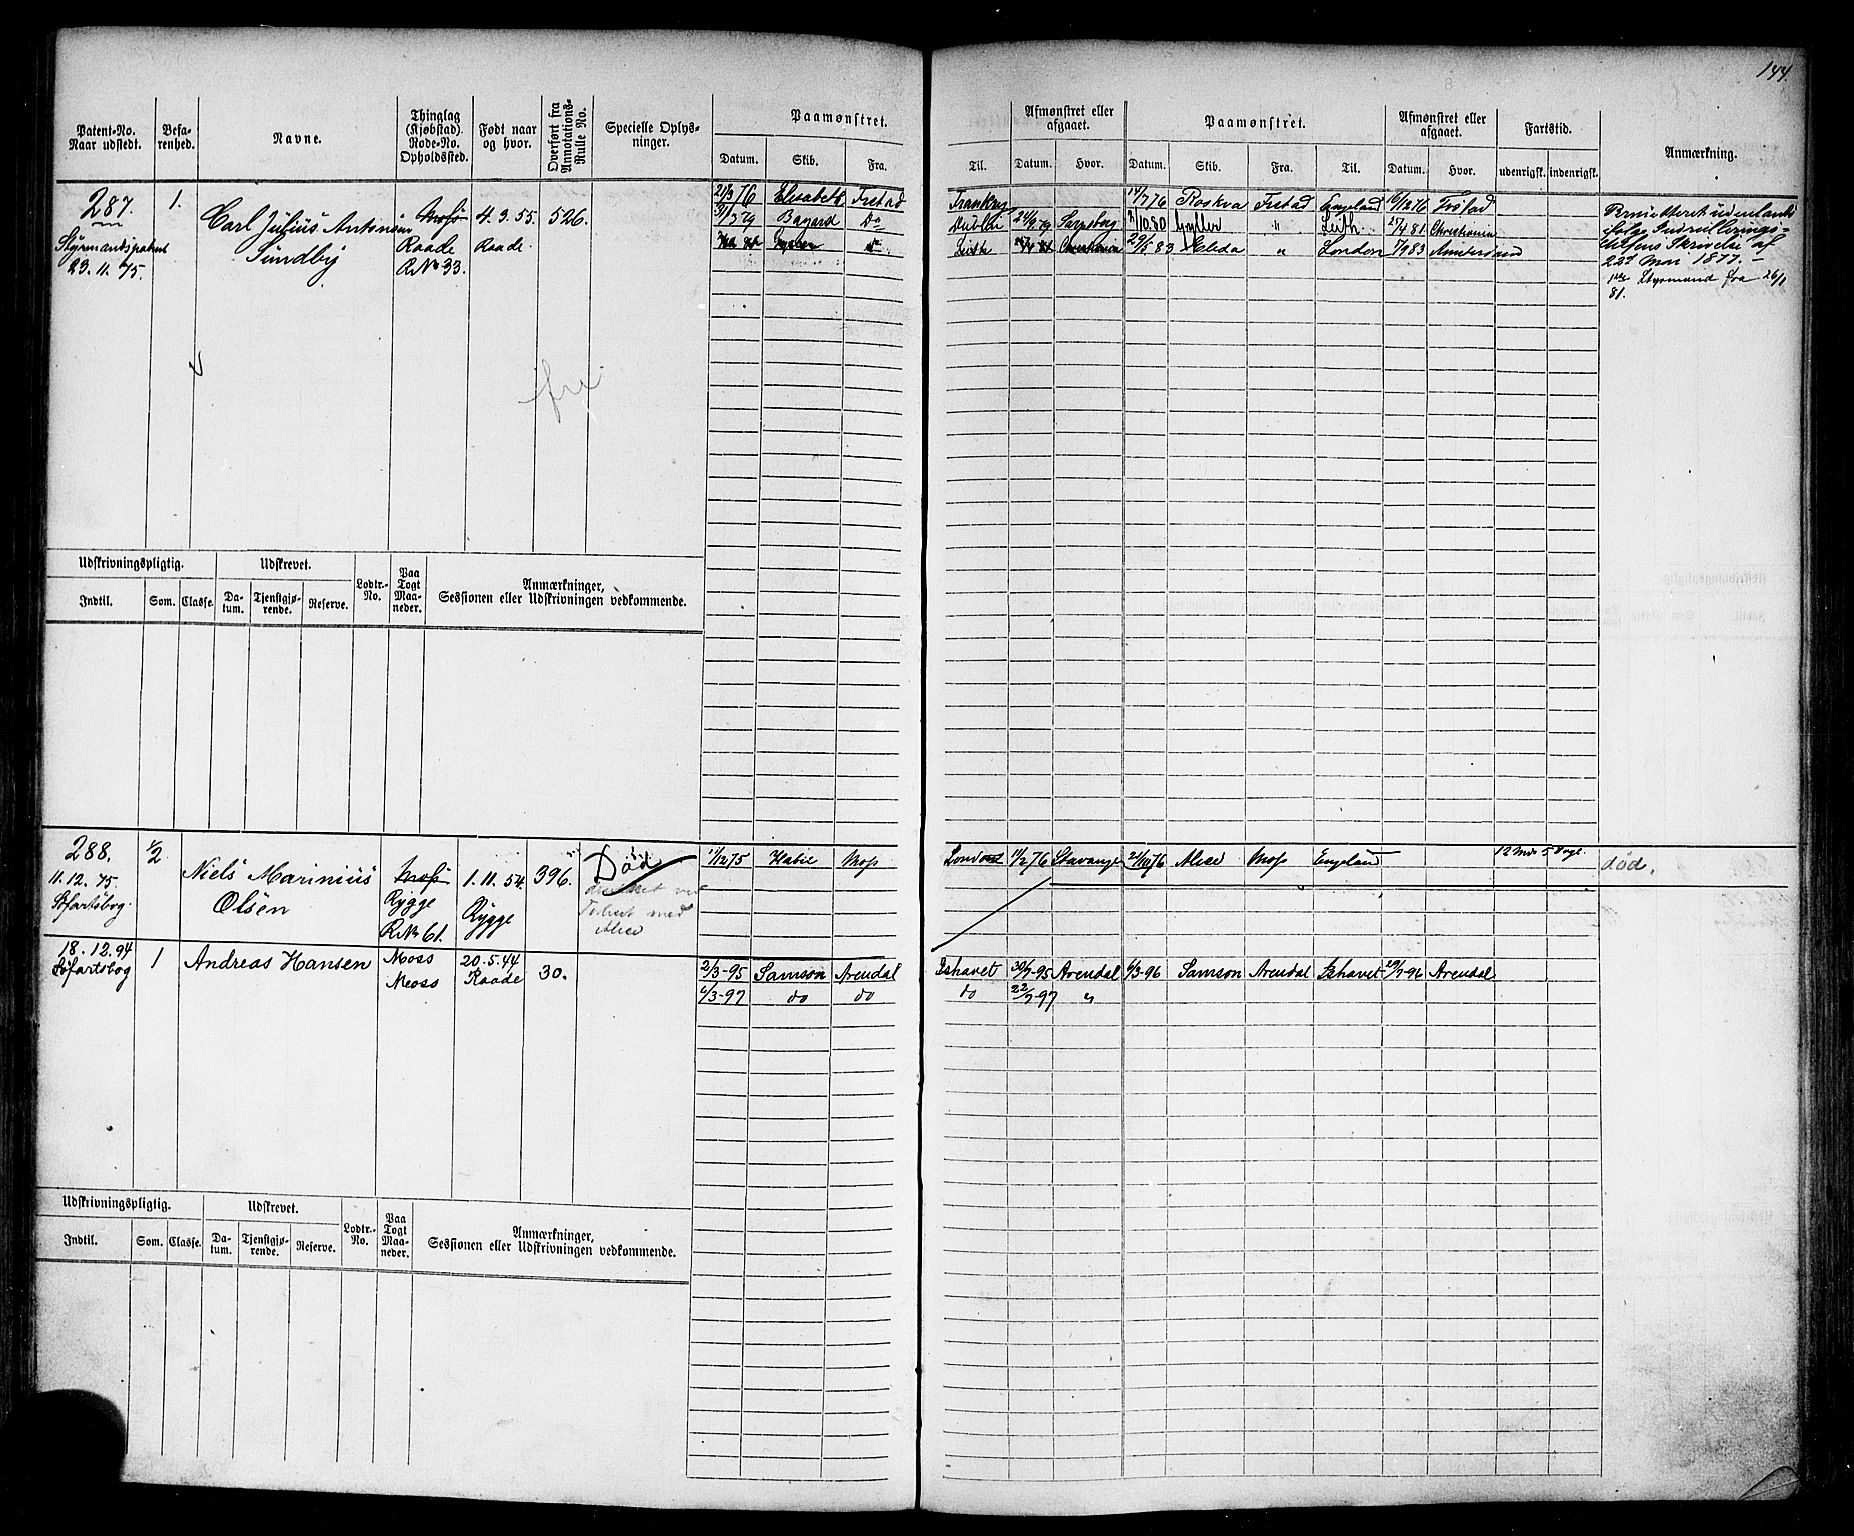 144.
Patent-No.
Naar udstedt.
Befa-
renhed.
Navne.
Thinglag
(Kjøbstad).
Rode-No.
Opholdssted.
Født naar
og hvor.
Overført fra
Annotations-
Rulle No.
Specielle Oplys-
ninger.
Paamønstret.
Datum. Skib. Fra.
Til.
Afmønstret eller
afgaaet.
Datum. Hvor.
Paamønstret.
Datum. Skib. Fra. Til.
Afmønstret eller
afgaaet.
Datum. Hvor.
Fartstid.
udenrigsk. indenrigsk.
Anmærkning.
287.
Styrmandspatent
23.11.75.
1.
Carl Julius Antonius
Sundby
Moss
Raade
R No 33.
4.9.55.
Raade
526.
21/3 76 Elisabeth Frstad
31/7 79 Bayard Do
Frankrig 14/7 76 Roskva Frstad England 16/12 76 Frstad
Dublin 24/9 79 Sarpsborg 9/10 80 Gyller " Leith 27/4 81 Christiania
Leith 29/5 83 " London 7/9 83 Amsterdam
Permitteret udenlands
ifølge Indrullerings-
chefens Skrivelse af
22d Mai 1877. –
1ste Styrmand fra 26/1
81.
fri
Udskrivningspligtig. Udskrevet. Lodtr.-
No.
Paa
Togt
Maa-
neder.
Anmærkninger,
Sessionen eller Udskrivningen vedkommende.
Indtil. Som. Classe. Da-
tum. Tjenstgjø-
rende. Reserve.
288.
11.12.75.
Søfartsbog.
1/2
Niels Marinius
Olsen
Moss
Rygge
R No 61.
1.11.54.
Rygge
396.
Død
druknet ved
med
Alice
11/12 75 Moss
London 11/2 76 Stavanger 21/10 76 Alice Moss England 12 Mdr 5 Dage
død.
18.12.94
Søfartsbog
1
Andreas Hansen
Moss
Moss
20.5.44
Raade
30.
2/3-95 Samson Arendal
6/3-97 do do
Ishavet 30/7-95 Arendal 6/3-96 Samson Arendal Ishavet 29/7-96 Arendal
do 22/7-97 "
Udskrivningspligtig. Udskrevet. Lodtr.-
No.
Paa
Togt
Maa-
neder.
Anmærkninger,
Sessionen eller Udskrivningen vedkommende.
Indtil. Som. Classe. Da-
tum. Tjenstgjø-
rende. Reserve.